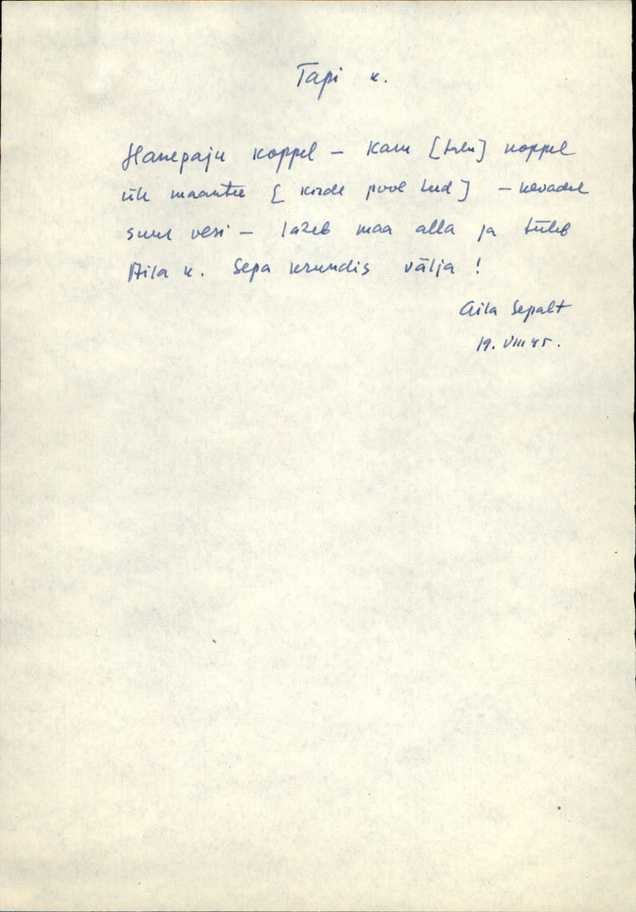 Tapi k.
Hanepaju koppel - Kam koppel
üle maantee [ poolt tud ] - kevadel
suur vesi - läheb maa alla ja tuleb
Aila k. Sepa krundis välja !
Aila Sepalt
19. VIII 45.